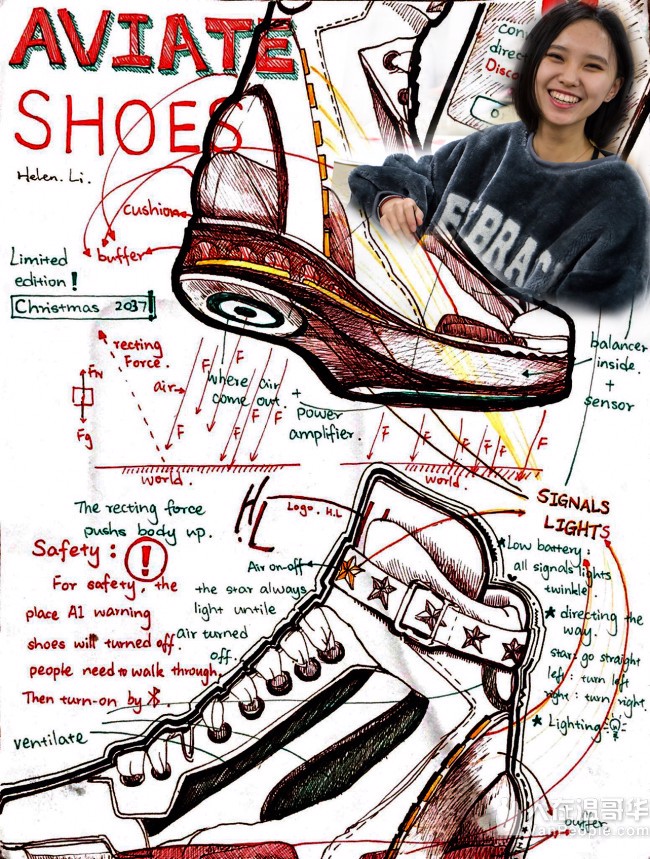 AVIATE
SHOES
Helen. Li.
cushion
buffer
Limited
edition!
Christmas 2037
recting
Force.
FN
Fg
air
F
F
F
F
F
F
F
where air
come out.
+
power
amplifier.
F
F
F
F
F
world.
world.
conv
direc
Disco
EMBRAC
balancer
inside.
+
sensor
The recting force
pushs body up.
H.L
Logo. H.L
SIGNALS
LIGHTS
Safety: !
For safety, the
place AI warning
shoes will turned off.
people need to walk through,
Then turn-on by
Air on-off
the star always
light untile
air turned
off.
*Low battery:
all signals lights
twinkle
* directing the
way.
star: go straight
left: turn left
right: turn right.
* Lighting
ventilate
buffer
人在温哥华
vanpeople.com